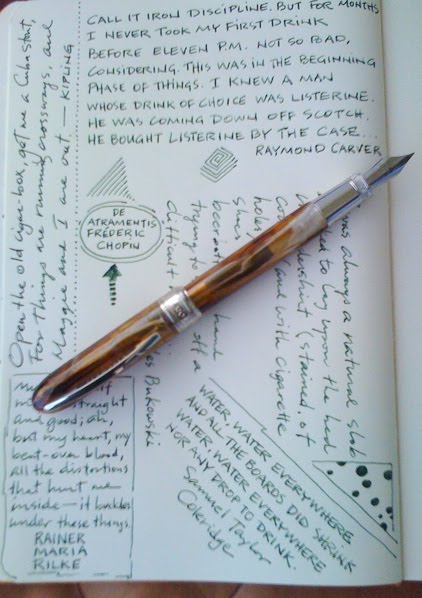 CALL IT IRON DISCIPLINE. BUT FOR MONTHS
I NEVER TOOK MY FIRST DRINK
BEFORE ELEVEN P.M. NOT SO BAD,
CONSIDERING. THIS WAS IN THE BEGINNING
PHASE OF THINGS. I KNEW A MAN
WHOSE DRINK OF CHOICE WAS LISTERINE.
HE WAS COMING DOWN OFF SCOTCH.
HE BOUGHT LISTERINE BY THE CASE...
RAYMOND CARVER
Open the old cigar-box, get me a Cuba stout,
For things are running crossways, and
Maggie and I are out. — KIPLING
DE
ATRAMENTIS
FRÉDERIC
CHOPIN
was always a natural slob
to lay upon the bed
undershirt (stained, of
and with cigarette
holes
shoes
hand
trying to off a
difficult
Bukowski
WATER, WATER EVERYWHERE
AND ALL THE BOARDS DID SHRINK
WATER, WATER EVERYWHERE
NOR ANY DROP TO DRINK.
Samuel Taylor
Coleridge
my
straight
and good; ah,
but my heart, my
bent-over blood,
all the distortions
that hurt me
inside—it buckles
under these things.
RAINER
MARIA
RILKE